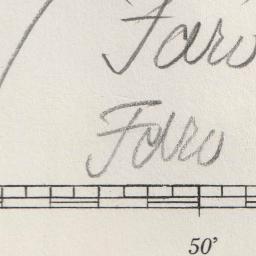 Faro
Faro
50'